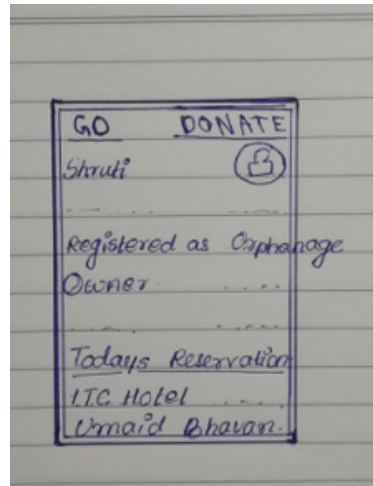 GO DONATE
Shruti
Registered as Orphanage
Owner
Todays Reservation
ITC Hotel
Umaid Bhavan.